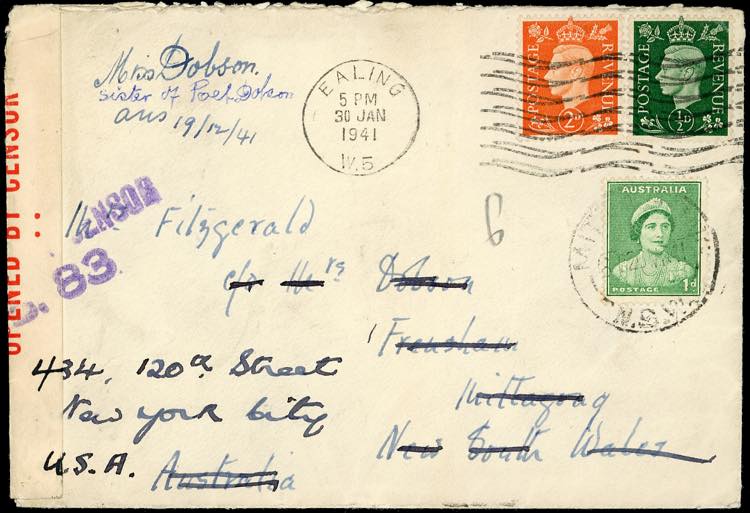 Miss Dobson.
Sister of Poet Dobson
ans 19/12/41
EALING
5 PM
30 JAN
1941
W.5
POSTAGE REVENUE
2D
POSTAGE REVENUE
½D
AUSTRALIA
POSTAGE 1d
N.S.W.
OPENED BY CENSOR
CENSOR
83
Fitzgerald
c/o Mrs Dobson
Frensham
Mittagong
New South Wales
Australia
434, 120th Street
New York City
U.S.A.
6